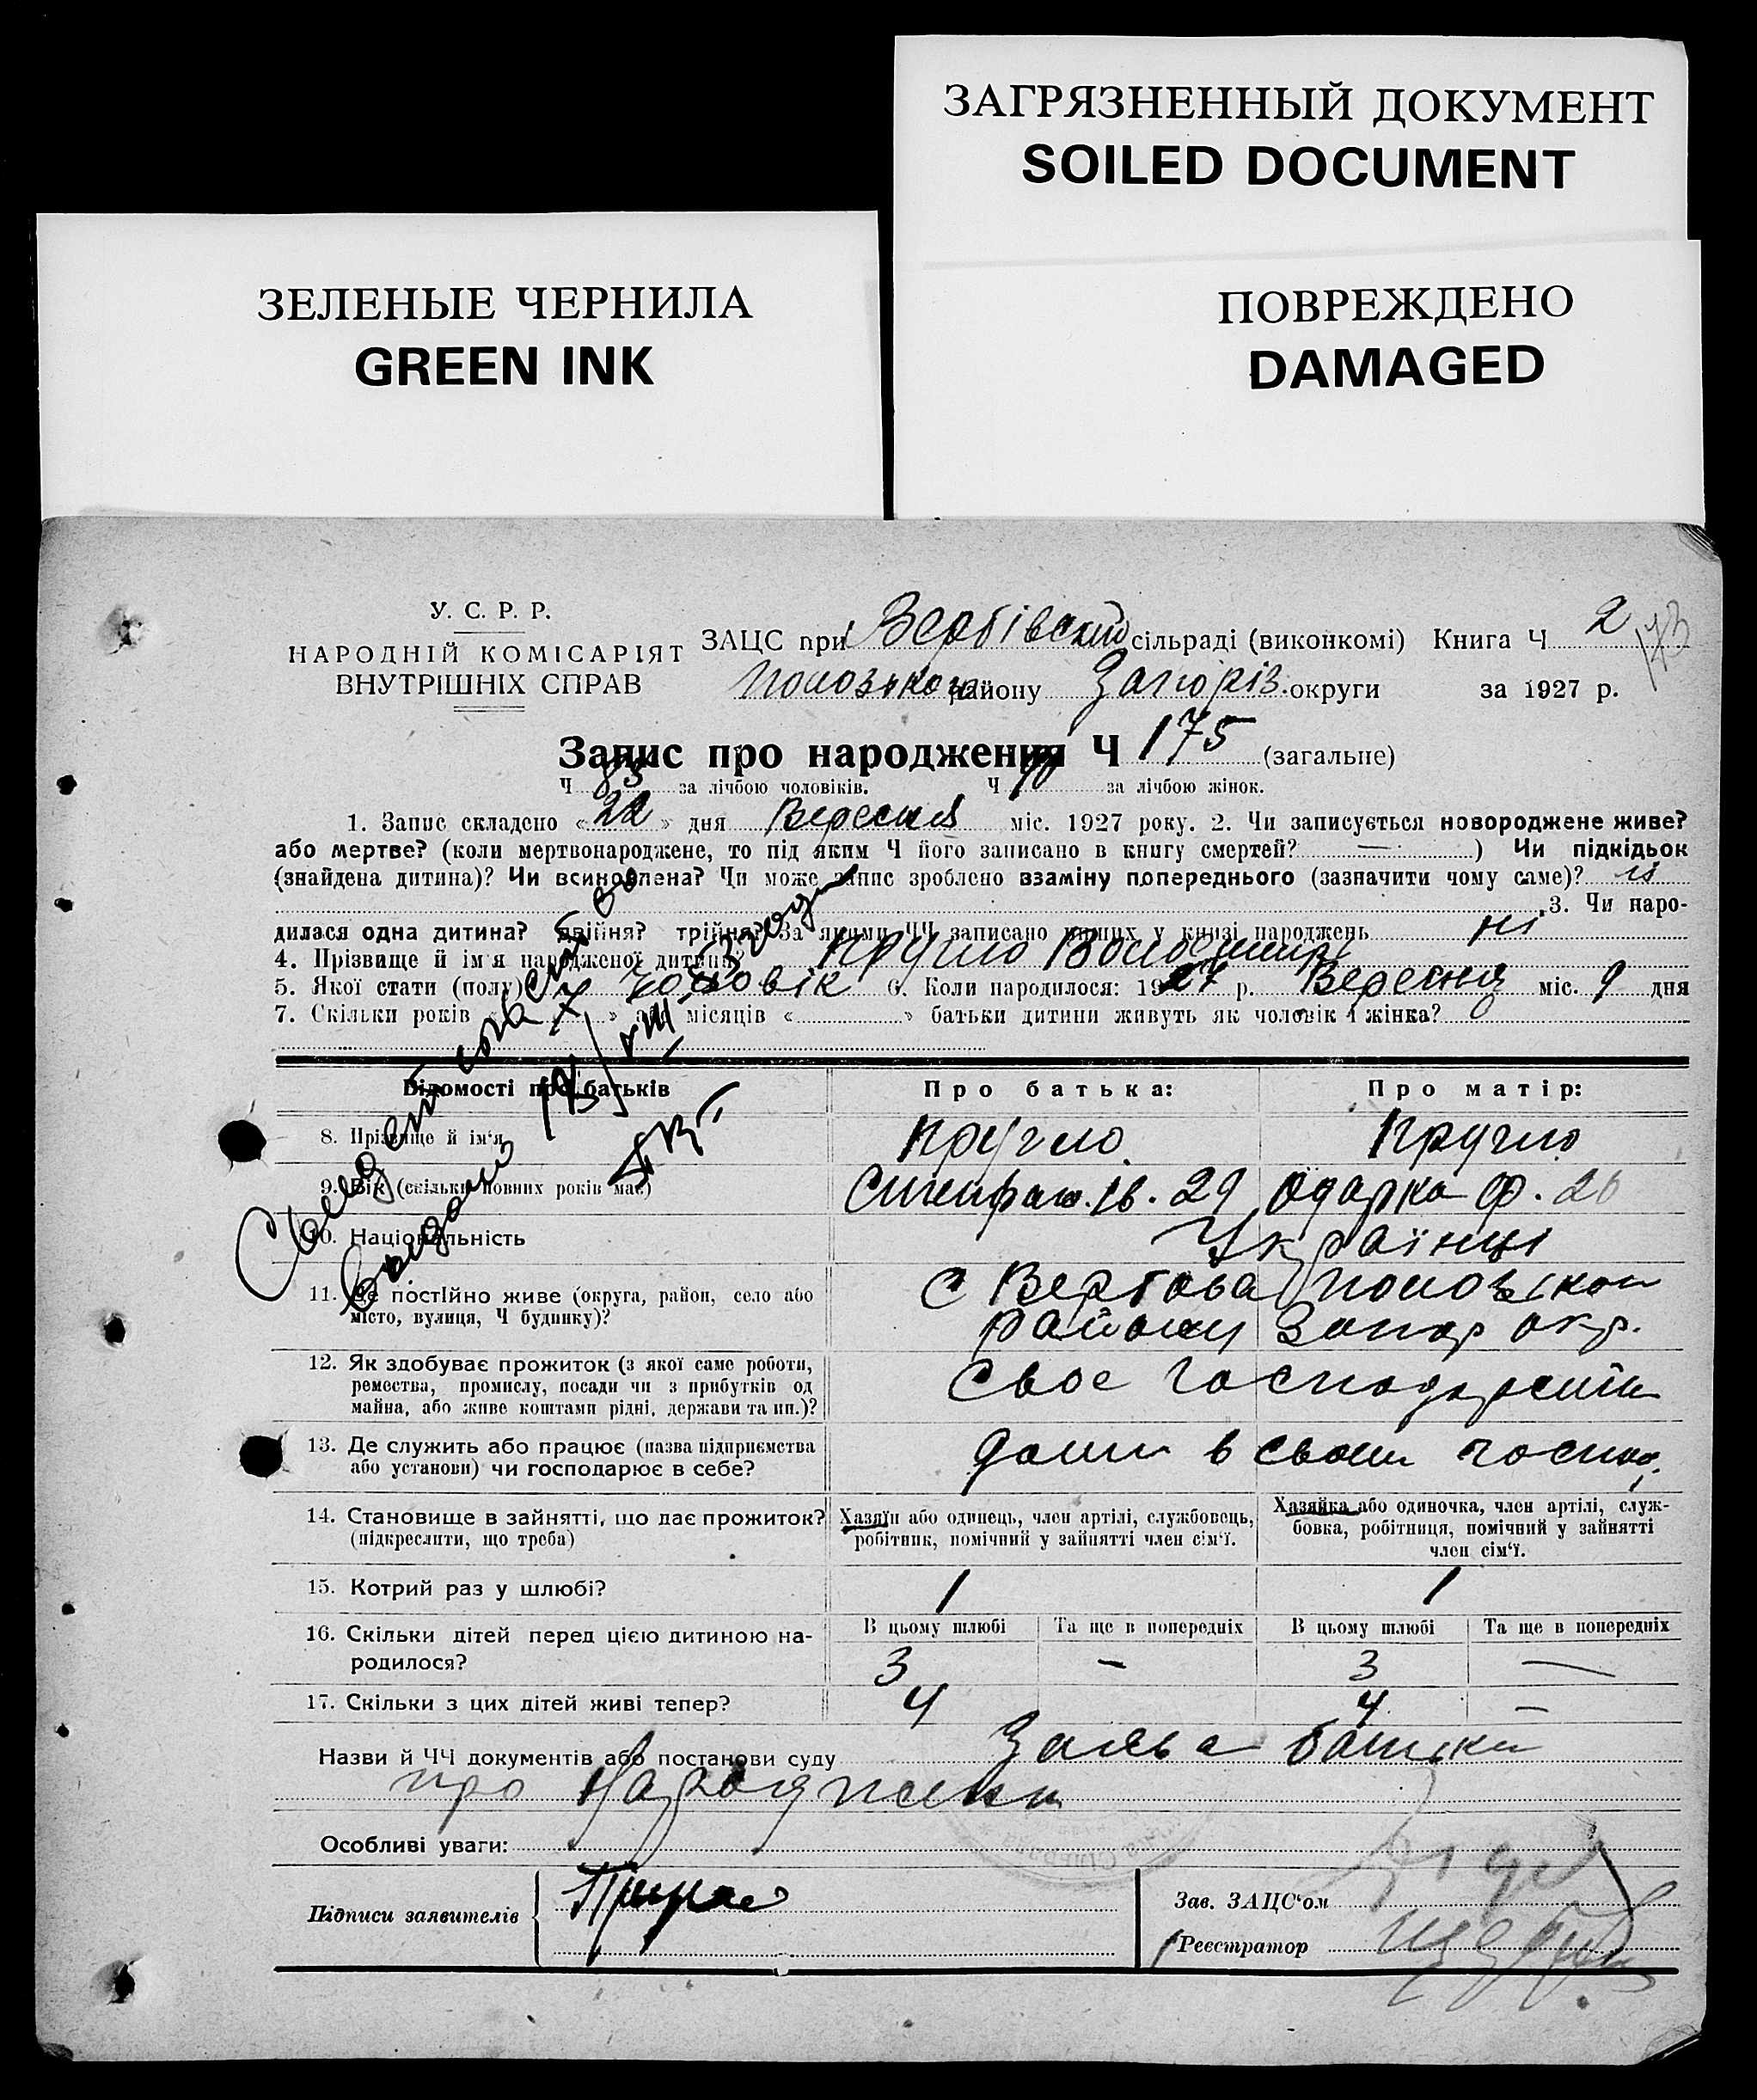 ЗАГРЯЗНЕННЫЙ ДОКУМЕНТ
SOILED DOCUMENT
ЗЕЛЕНЫЕ ЧЕРНИЛА
GREEN INK
ПОВРЕЖДЕНО
DAMAGED
У. С. Р. Р.
НАРОДНІЙ КОМІСАРІЯТ
ВНУТРІШНІХ СПРАВ
ЗАЦС при Вербівский сільраді (виконкомі) Книга Ч 2
району Запоріз. округи за 1927 р.
173
Запис про народження Ч 175 (загальне)
Ч 83 за лічбою чоловіків. Ч 90 за лічбою жінок.
1. Запис складено «22» дня Вересня міс. 1927 року. 2. Чи записується новороджене живе?
або мертве? (коли мертвонароджене, то під яким Ч його записано в книгу смертей? —) Чи підкідьок
(знайдена дитина)? Чи всиновлена? Чи може запис зроблено взаміну попереднього (зазначити чому саме)?
3. Чи наро-
дилася одна дитина? двійня? трійня? За якими ЧЧ записано инших у книзі народжень ні
4. Прізвище й ім'я народженої дитини? Кругло
5. Якої стати (полу)? чоловік 6. Коли народилося: 1927 р. Вересня міс. 9 дня
7. Скільки років « » або місяців « » батьки дитини живуть як чоловік і жінка?
Відомості про батьків
Про батька:
Про матір:
8. Прізвище й ім‘я
Кругло
Кругло
9. Вік (скільки повних років має)
29
Одарка Ф. 26
10. Національність
Українці
11. Де постійно живе (округа, район, село або
місто, вулиця, Ч будинку)?
с Вербова
району Запор окр.
12. Як здобуває прожиток (з якої саме роботи,
ремества, промислу, посади чи з прибутків од
майна, або живе коштами рідні, держави та ин.)?
Своє
13. Де служить або працює (назва підприємства
або установи) чи господарює в себе?
в своим господ.
14. Становище в зайнятті, що дає прожиток?
(підкреслити, що треба)
Хазяїн або одинець, член артілі, службовець,
робітник, помічний у зайнятті член сім‘ї.
Хазяйка або одиночка, член артілі, служ-
бовка, робітниця, помічний у зайнятті
член сім‘ї.
15. Котрий раз у шлюбі?
1
1
16. Скільки дітей перед цією дитиною на-
родилося?
В цьому шлюбі
Та ще в попередніх
В цьому шлюбі
Та ще в попередніх
3
—
3
—
17. Скільки з цих дітей живі тепер?
4
4
—
Назви й ЧЧ документів або постанови суду Заява батька
про
Особливі уваги:
Підписи заявителів
Зав. ЗАЦС‘ом
Реєстратор